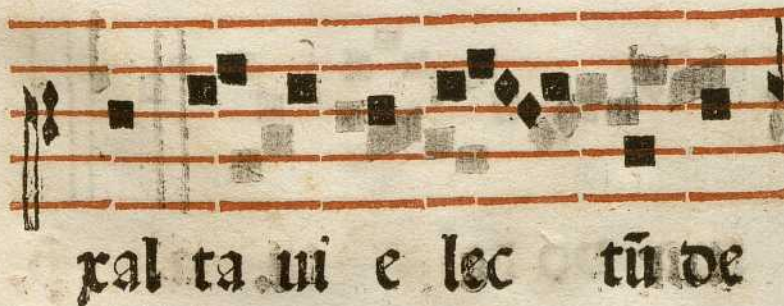 xal ta ui e lec tū de